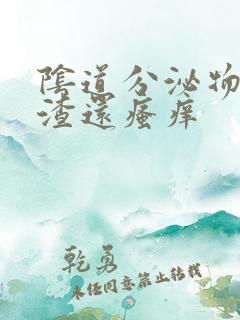 陰道分泌物
渣還瘙癢
乾勇
未经同意禁止转载